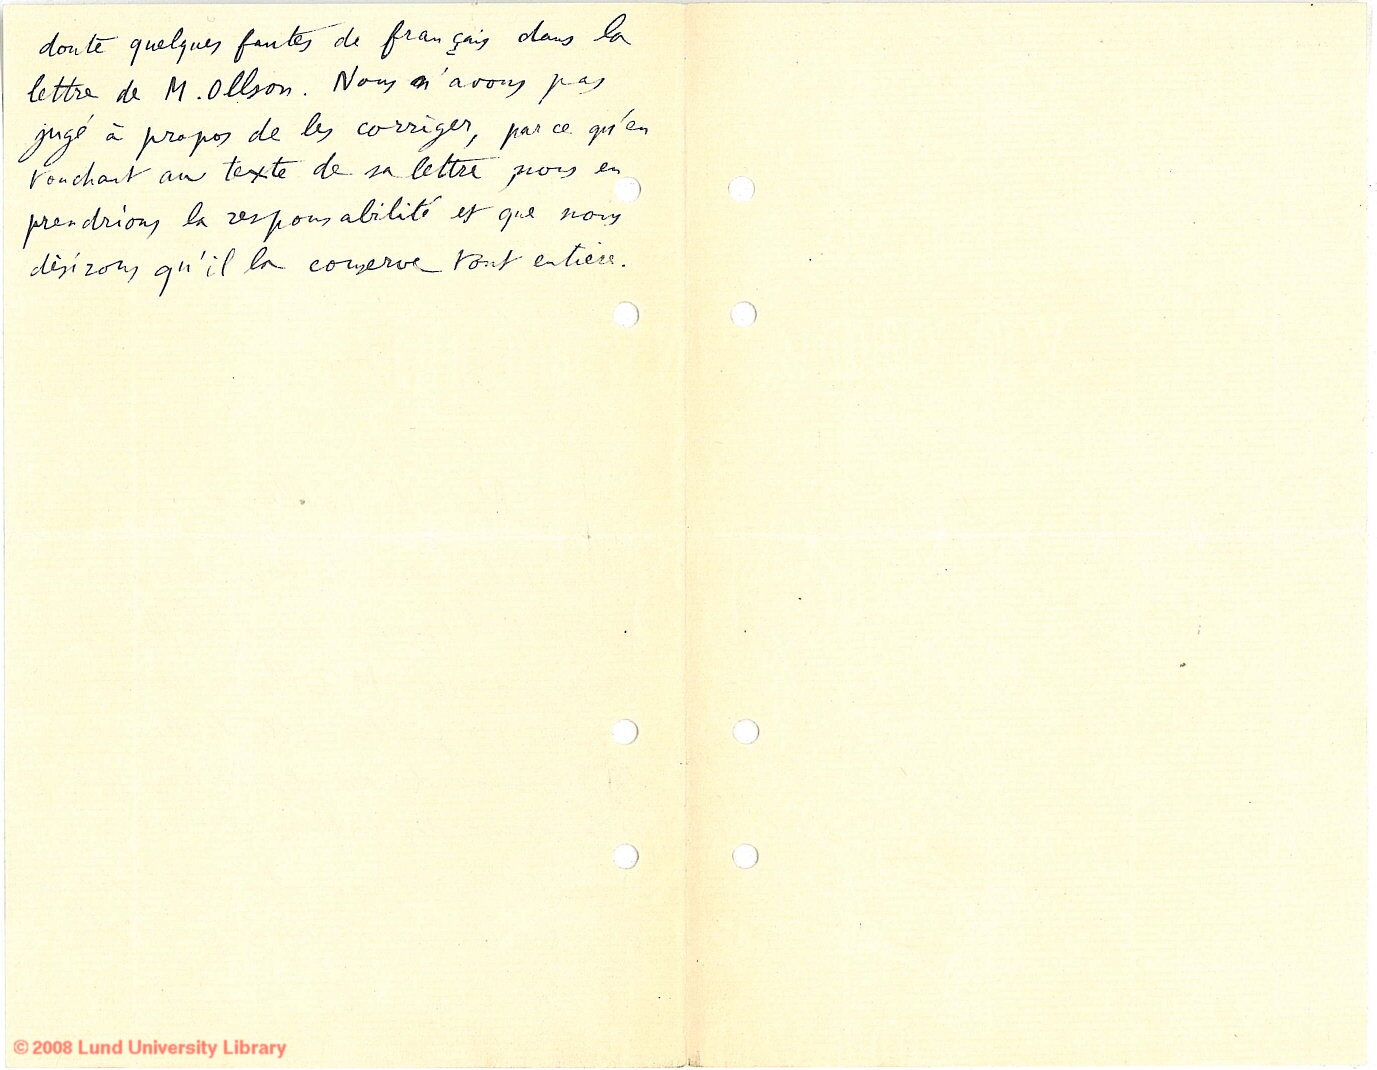 doute quelques fautes de français dans la
lettre de M. Ollson. Nous n'avons pas
jugé à propos de les corriger, parce qu'en
touchant au texte de sa lettre nous en
prendrions la responsabilité et que nous
désirons qu'il la conserve tout entière.
© 2008 Lund University Library